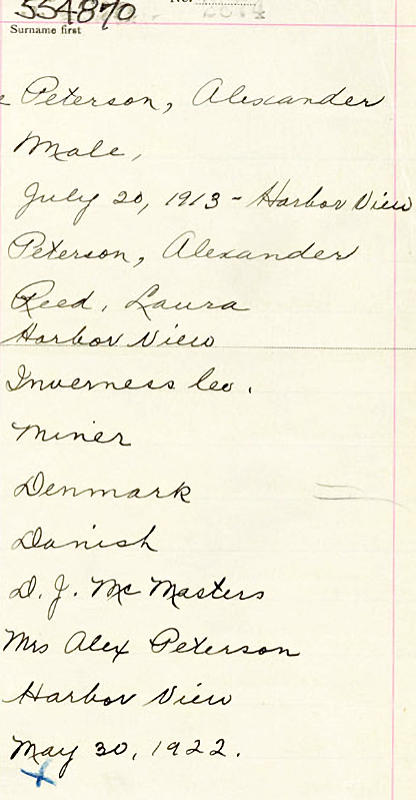 554870 No.
Surname first
Peterson, Alexander
Male,
July 20, 1913 - Harbor View
Peterson, Alexander
Reed, Laura
Harbor View
Inverness Co.
Miner
Denmark
Danish
D. J. Mc Masters
Mrs Alex Peterson
Harbor View
May 30, 1922.